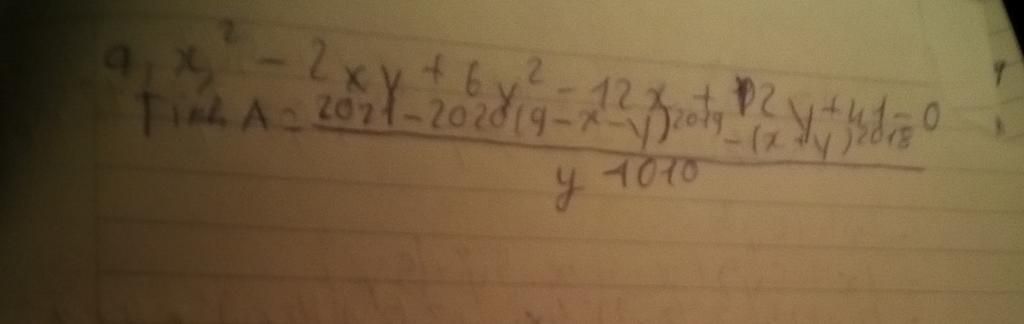 a, x² - 2xy + 6y² - 12x + 12y + 41 = 0
Tính A = 2021 - 2020(9 - x - y)²⁰¹⁹ - (x + y)²⁰¹⁸
y¹⁰¹⁰